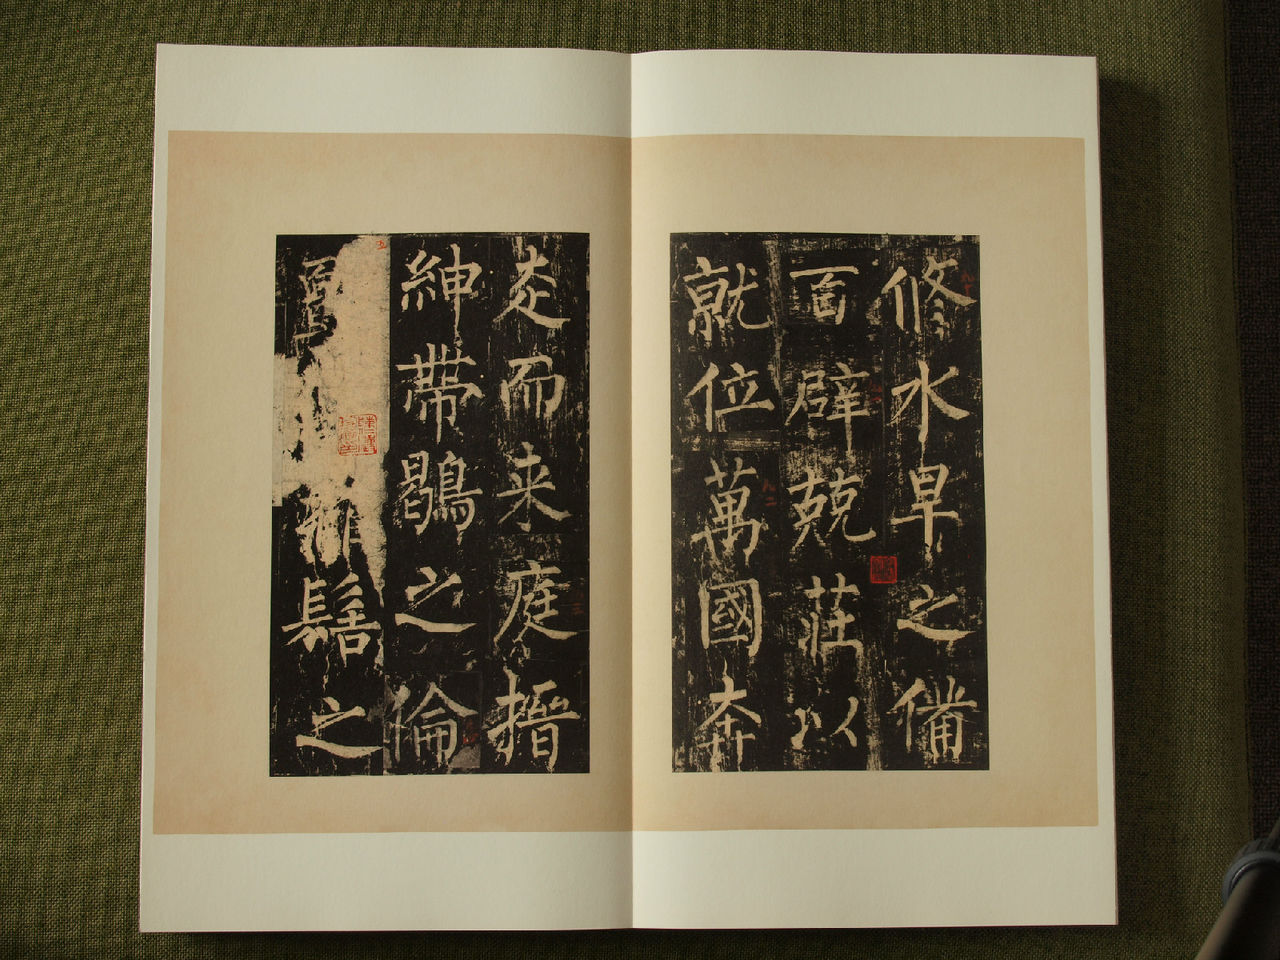 修水旱之備
百辟兢莊以
就位萬國奔
走而来庭搢
紳帶鶡之倫
髻之